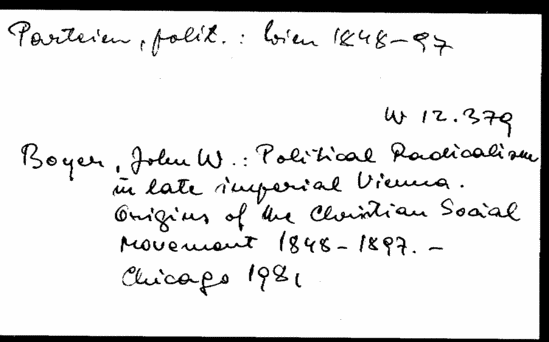 Parteien, polit. : Wien 1848-97
W 12.379
Boyer, John W. : Political Radicalism
in late imperial Vienna.
Origins of the Christian Social
Movement 1848-1897. -
Chicago 1981